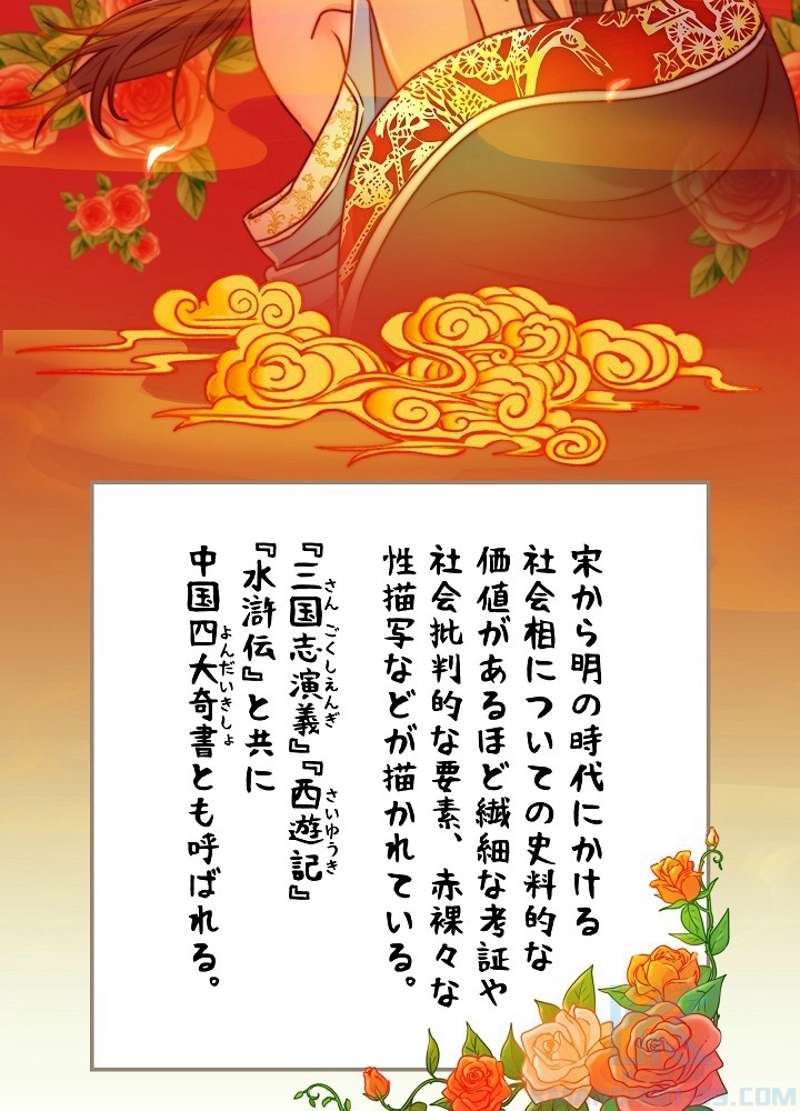 宋から明の時代にかける
社会相についての史料的な
価値があるほど繊細な考証や
社会批判的な要素、赤裸々な
性描写などが描かれている。
『三国志演義』『西遊記』
さんごくしえんぎ さいゆうき
『水滸伝』と共に
中国四大奇書とも呼ばれる。
よんだいきしょ